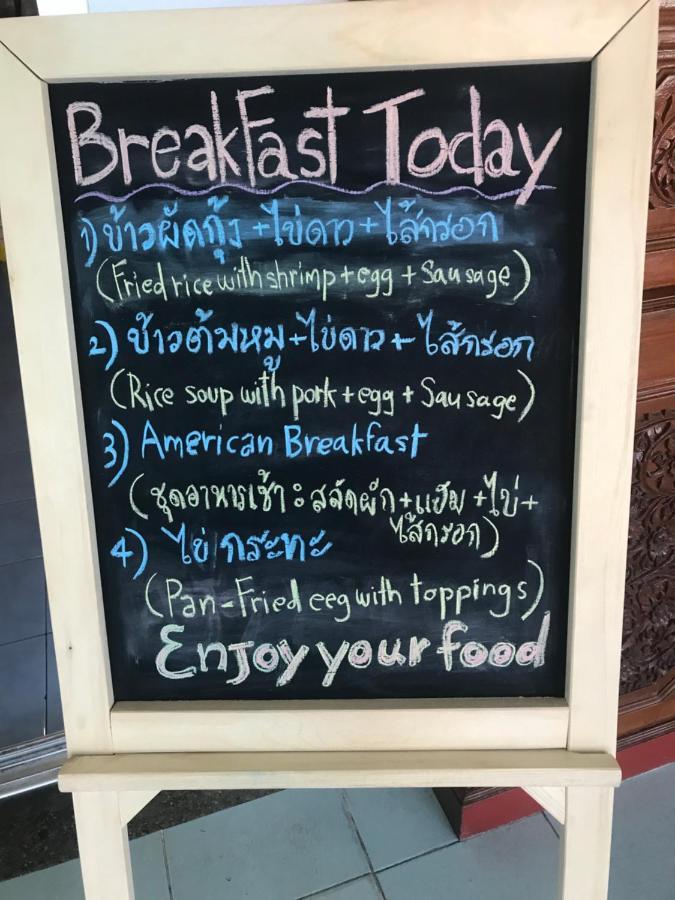 Breakfast Today
1) ข้าวผัดกุ้ง +ไข่ดาว + ไส้กรอก
(Fried rice with shrimp + egg + Sausage)
2) ข้าวต้มหมู +ไข่ดาว + ไส้กรอก
(Rice soup with pork + egg + Sausage)
3) American Breakfast
(ชุดอาหารเช้า : สลัดผัก + แฮม + ไข่ +
ไส้กรอก)
4) ไข่ กระทะ
(Pan-Fried eeg with toppings)
Enjoy your food